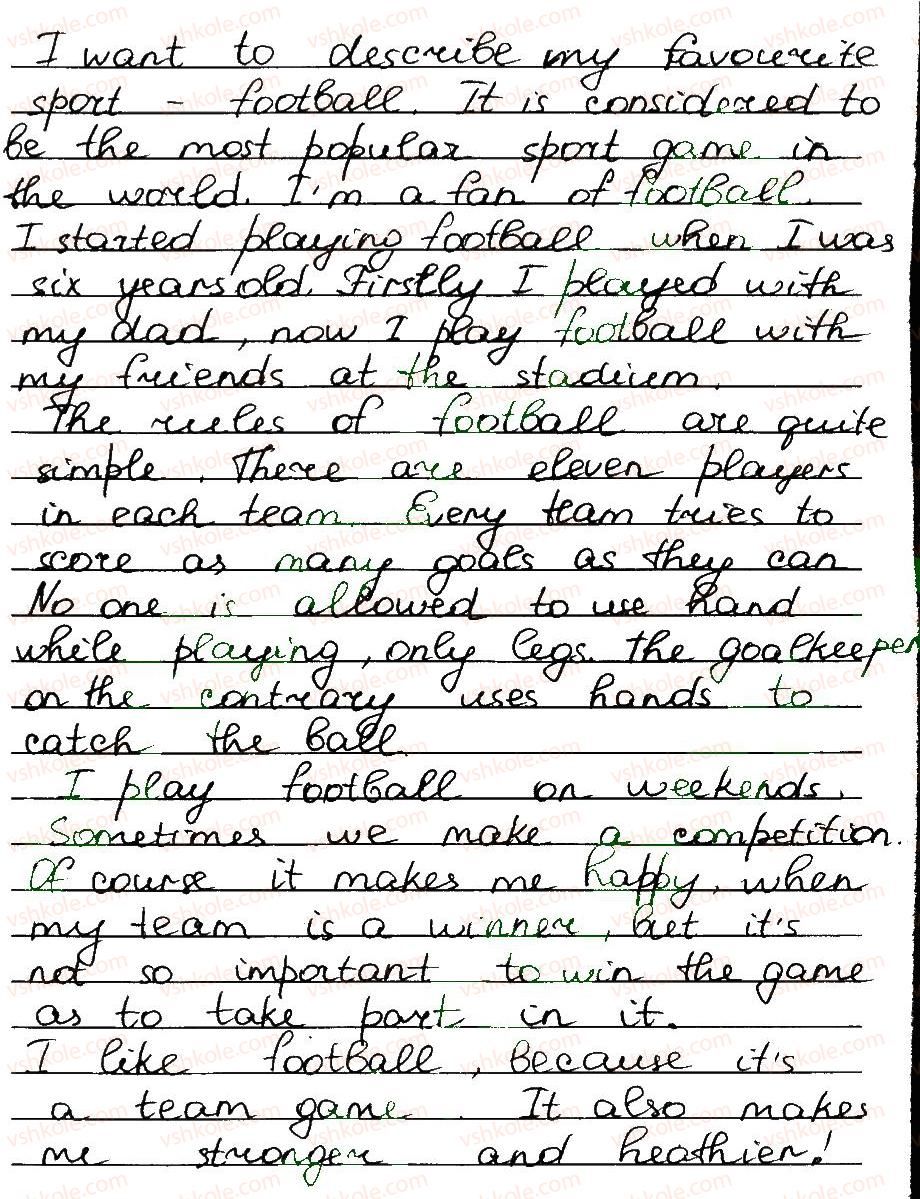 I want to describe my favourite
sport - football. It is considered to
be the most popular sport game in
the world. I'm a fan of football.
I started playing football when I was
six years old. Firstly I played with
my dad, now I play football with
my friends at the stadium.
The rules of football are quite
simple. There are eleven players
in each team. Every team tries to
score as many goals as they can
No one is allowed to use hand
while playing, only legs. The goalkeeper
on the contrary uses hands to
catch the ball.
I play football on weekends.
Sometimes we make a competition.
Of course it makes me happy, when
my team is a winner, but it's
not so important to win the game
as to take part in it.
I like football, because it's
a team game. It also makes
me stronger and heathier!